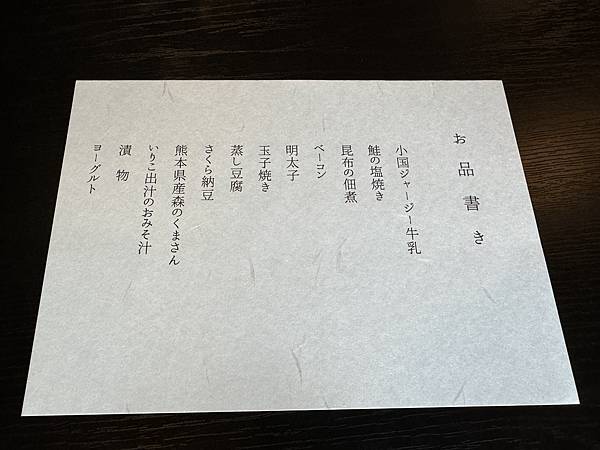 お品書き
小国ジャージー牛乳
鮭の塩焼き
昆布の佃煮
ベーコン
明太子
玉子焼き
蒸し豆腐
さくら納豆
熊本県産森のくまさん
いりこ出汁のおみそ汁
漬物
ヨーグルト